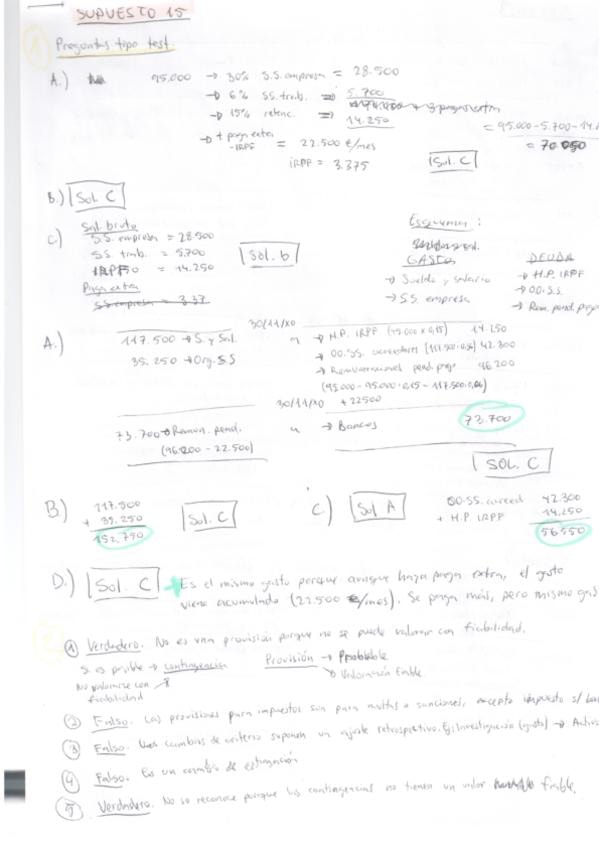 SUPUESTO 15
1 Preguntas tipo test.
A.) 95.000 → 30% S.S. empresa = 28.500
→ 6% SS. trab. ⇒ 5.700
→ 15% retenc. ⇒ 14.250
= 95.000 - 5.700 - 14.
= 70.050
→ + paga extra = 22.500 €/mes
- IRPF
IRPF = 3.375
Sol. C
B.) Sol. C
C.) Sal. bruto
S.S. empresa = 28.500
SS. trab. = 5.700
IRPF = 14.250
Paga extra
SS empresa = 3.37
Sol. b
Esquema:
GASTO
→ Sueldo y salario
→ S.S. empresa
DEUDA
→ H.P. IRPF
→ OO.S.S.
→ Rem. pend. pago
A.) 30/11/X0
117.500 → S. y Sal.
35.250 → Org. S.S
a → H.P. IRPF (95.000 x 0,15) 14.250
→ OO.SS. acreedores (117.500 · 0,36) 42.300
→ Remuneraciones pend. pago 96.200
(95.000 - 95.000 · 0,15 - 117.500 · 0,06)
+ 22500
30/11/X0
73.700 → Remun. pend.
(96.200 - 22.500)
a → Bancos 73.700
SOL. C
B.) 117.500
+ 35.250
152.750
Sol. C
C.) Sol A
OO.SS. acreed 42.300
+ H.P. IRPF 14.250
56.550
D.) Sol. C → Es el mismo gasto porque aunque haya paga extra, el gasto
viene acumulado (22.500 €/mes). Se paga más, pero mismo gas
2
① Verdadero. No es una provisión porque no se puede valorar con fiabilidad.
Si es posible → contingencia
No valorarse con
fiabilidad
Provisión → Probable
→ Valoración fiable
② Falso. Las provisiones para impuestos son para multas o sanciones, excepto impuesto s/ ben
③ Falso. Los cambios de criterio suponen un ajuste retrospectivo. Ej: Investigación (gasto) → Activo
④ Falso. Es un cambio de estimación
⑤ Verdadero. No se reconoce porque las contingencias no tienen un valor fiable.